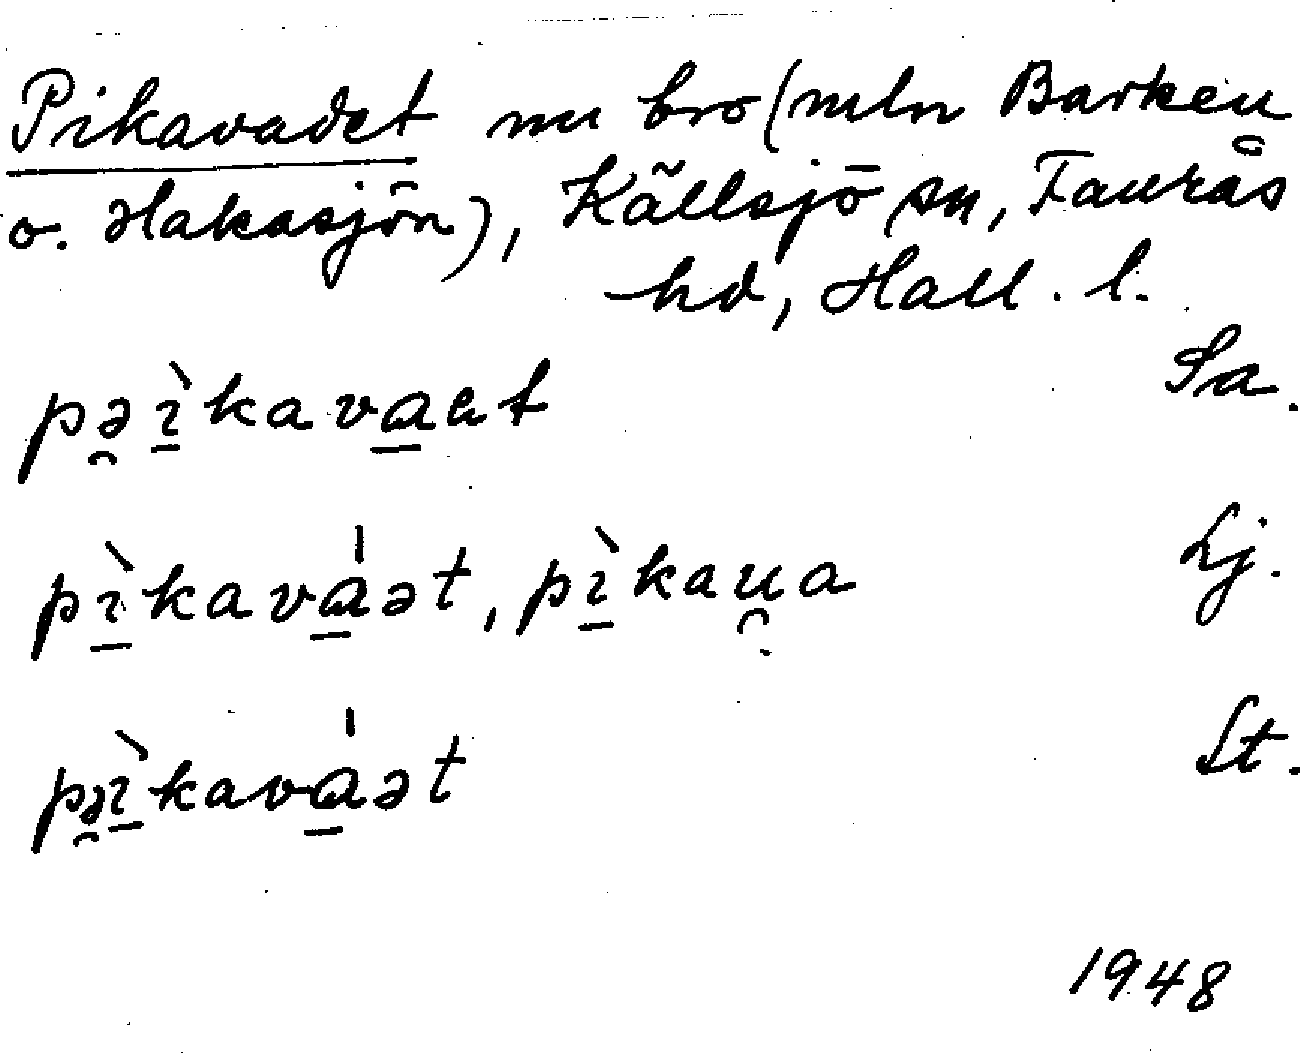 Pikavadet nu bro (mln Barken
o. Hakasjön), Källsjö sn, Faurås
hd, Hall. l.
pə̯ɪ̠̀kava̠et Sa.
pɪ̠̀kava̠̍ət, pɪ̠̀kau̯a Lj.
pə̯ɪ̠̀kava̠̍ət St.
1948